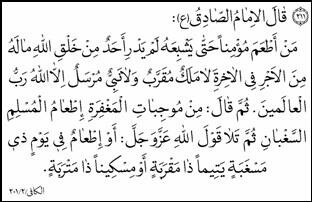 (٢١١) قَالَ الإِمَامُ الصَّادِقُ (ع):
مَنْ أَطْعَمَ مُؤْمِناً حَتَّى يُشْبِعَهُ لَمْ يَدْرِ أَحَدٌ مِنْ خَلْقِ اللهِ مَالَهُ
مِنَ الأَجْرِ فِي الآخِرَةِ لَا مَلَكٌ مُقَرَّبٌ وَلَا نَبِيٌّ مُرْسَلٌ إِلَّا اللهُ رَبُّ
الْعَالَمِينَ. ثُمَّ قَالَ: مِنْ مُوجِبَاتِ الْمَغْفِرَةِ إِطْعَامُ الْمُسْلِمِ
السَّغْبَانِ ثُمَّ تَلَا قَوْلَ اللهِ عَزَّ وَجَلَّ: أَوْ إِطْعَامٌ فِي يَوْمٍ ذِي
مَسْغَبَةٍ يَتِيماً ذَا مَقْرَبَةٍ أَوْ مِسْكِيناً ذَا مَتْرَبَةٍ.
الكافي/٢٠١/٢